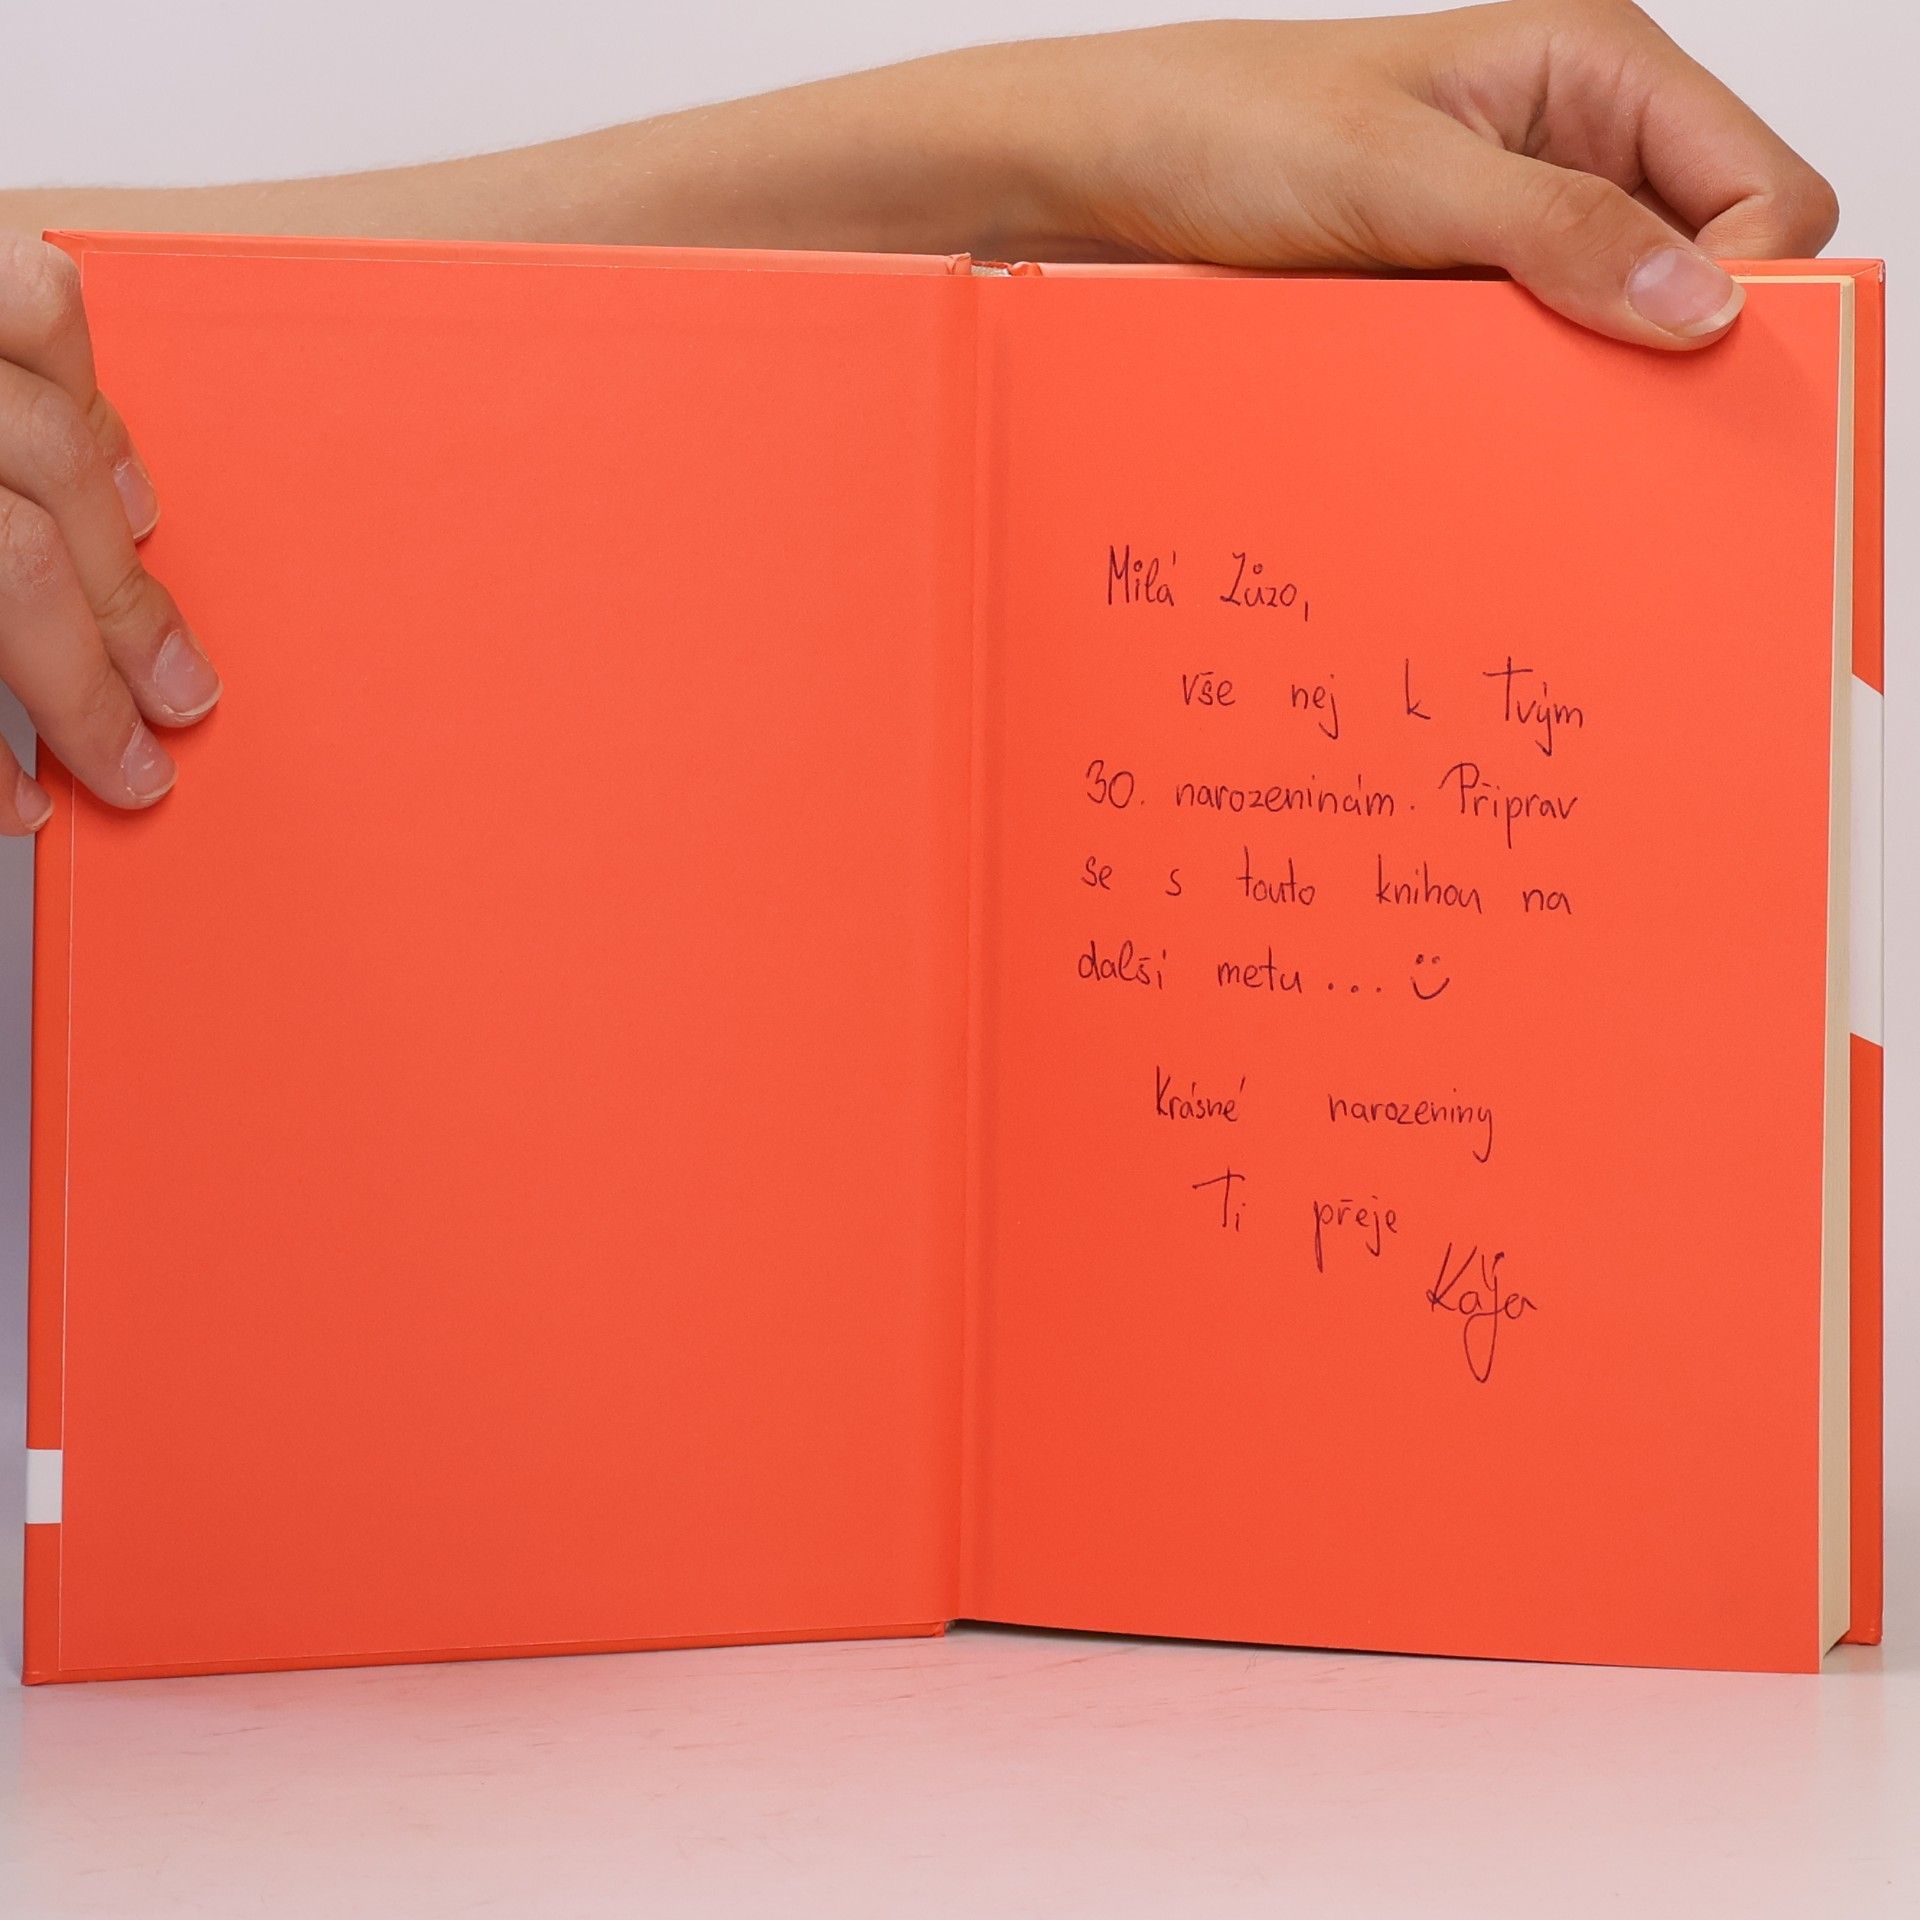 Milá Zůzo,
vše nej k Tvým
30. narozeninám. Připrav
se s touto knihou na
další metu... :)
Krásné narozeniny
Ti přeje
Kája